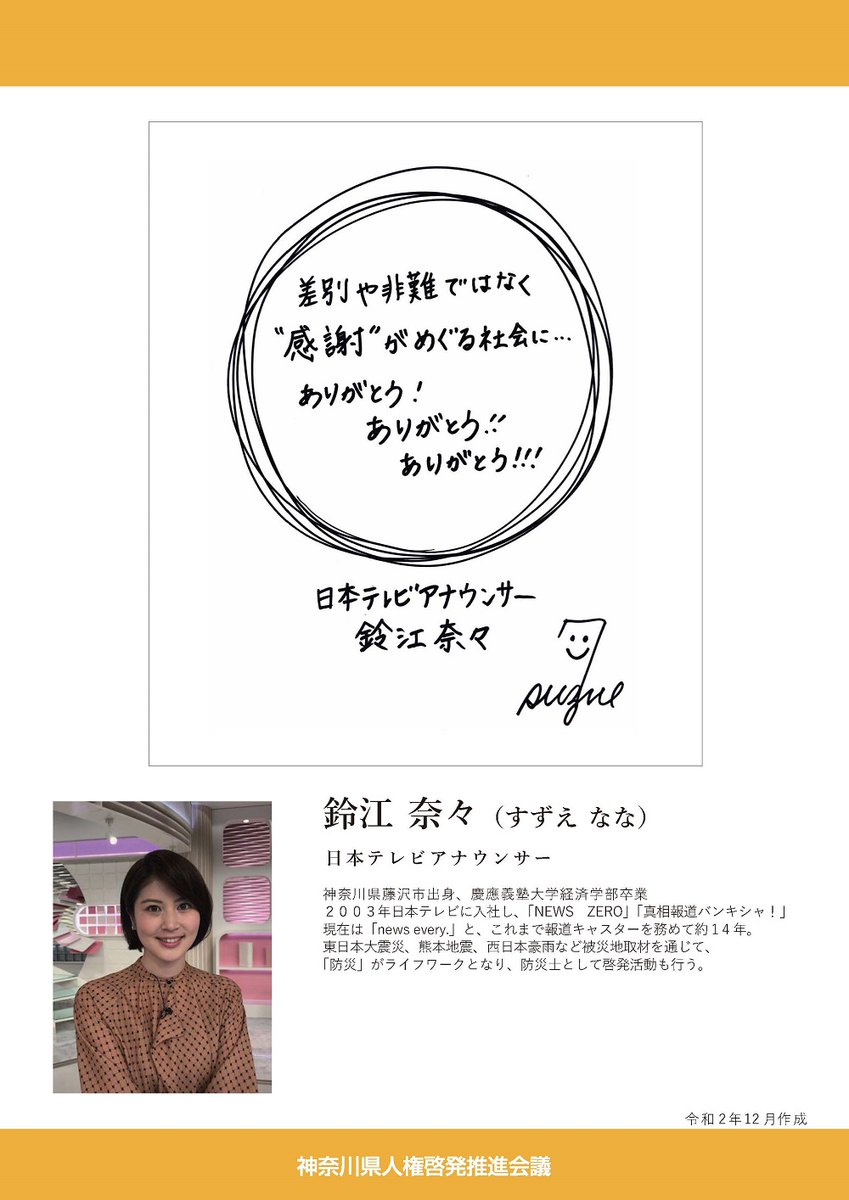 差別や非難ではなく
"感謝"がめぐる社会に…
ありがとう！
ありがとう!!
ありがとう!!!
日本テレビアナウンサー
鈴江奈々
suzue
鈴江 奈々（すずえ なな）
日本テレビアナウンサー
神奈川県藤沢市出身、慶應義塾大学経済学部卒業
２００３年日本テレビに入社し、「NEWS　ZERO」「真相報道バンキシャ！」
現在は「news every.」と、これまで報道キャスターを務めて約１４年。
東日本大震災、熊本地震、西日本豪雨など被災地取材を通じて、
「防災」がライフワークとなり、防災士として啓発活動も行う。
令和２年12月作成
神奈川県人権啓発推進会議